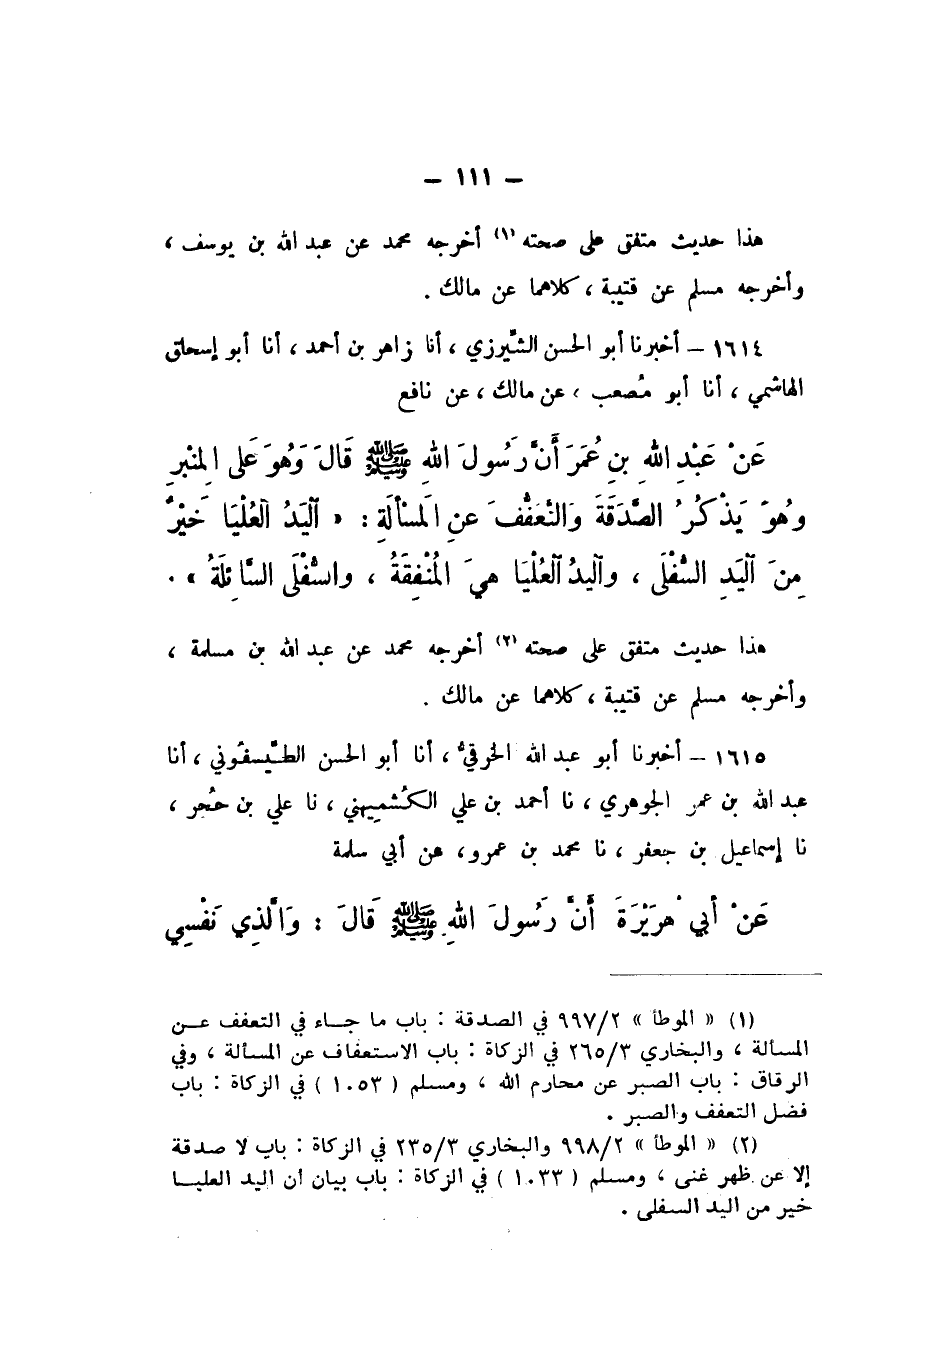 – ١١١ –
هذا حديث متفق على صحته (١) أخرجه محمد عن عبد الله بن يوسف ،
وأخرجه مسلم عن قتيبة ، كلاهما عن مالك .
١٦١٤ – أخبرنا أبو الحسن الشِّيرزي ، أنا زاهر بن أحمد ، أنا أبو إسحاق
الهاشمي ، أنا أبو مُصعب ، عن مالك ، عن نافع
عَنْ عَبْدِ اللهِ بنِ عُمَرَ أَنَّ رَسُولَ اللهِ ﷺ قَالَ وَهُوَ عَلى المِنْبرِ
وهُوَ يَذْكُرُ الصَّدَقَةَ وَالتَّعَفُّفَ عنِ المَسْأَلَةِ : « آليَدُ آلعُلْيَا خَيْرٌ
مِنَ آليَدِ السُّفْلَى ، وآليدُ آلعُلْيَا هيَ المُنْفِقَةُ ، والسُّفْلَى السَّائِلَةُ » .
هذا حديث متفق على صحته (٢) أخرجه محمد عن عبد الله بن مسلمة ،
وأخرجه مسلم عن قتيبة ، كلاهما عن مالك .
١٦١٥ – أخبرنا أبو عبد الله الخرقيُّ ، أنا أبو الحسن الطَّيسفُوني ، أنا
عبد الله بن عمر الجوهري ، نا أحمد بن علي الكُشمِيهني ، نا علي بن حُجر ،
نا إسماعيل بن جعفر ، نا محمد بن عمرو ، عن أبي سلمة
عَنْ أبي هرَيْرَةَ أَنَّ رَسُولَ اللهِ ﷺ قَالَ : وَالَّذِي نَفْسِي
(١) « الموطأ » ٩٩٧/٢ في الصدقة : باب ما جـاء في التعفف عـن
المسألة ، والبخاري ٢٦٥/٣ في الزكاة : باب الاستعفاف عن المسألة ، وفي
الرقاق : باب الصبر عن محارم الله ، ومسلم ( ١٠٥٣ ) في الزكاة : باب
فضل التعفف والصبر .
(٢) « الموطأ » ٩٩٨/٢ والبخاري ٢٣٥/٣ في الزكاة : باب لا صدقة
إلا عن ظهر غنى ، ومسلم ( ١٠٣٣ ) في الزكاة : باب بيان أن اليد العليـا
خير من اليد السفلى .